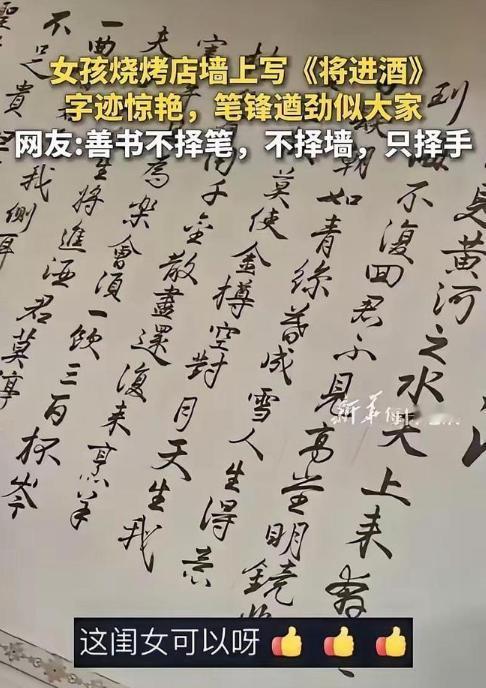 女孩烧烤店墙上写《将进酒》
字迹惊艳，笔锋遒劲似大家
网友:善书不择笔，不择墙，只择手
見黄河之水天上来
到
不復回君不見高堂明鏡
朝如青絲暮成雪人生得意
莫使金樽空對月天生我
千金散盡還復来烹羊
為樂會須一飲三百杯岑
夫
生將進酒君莫停
一曲
我側耳
不足貴
新华
这闺女可以呀👍👍👍